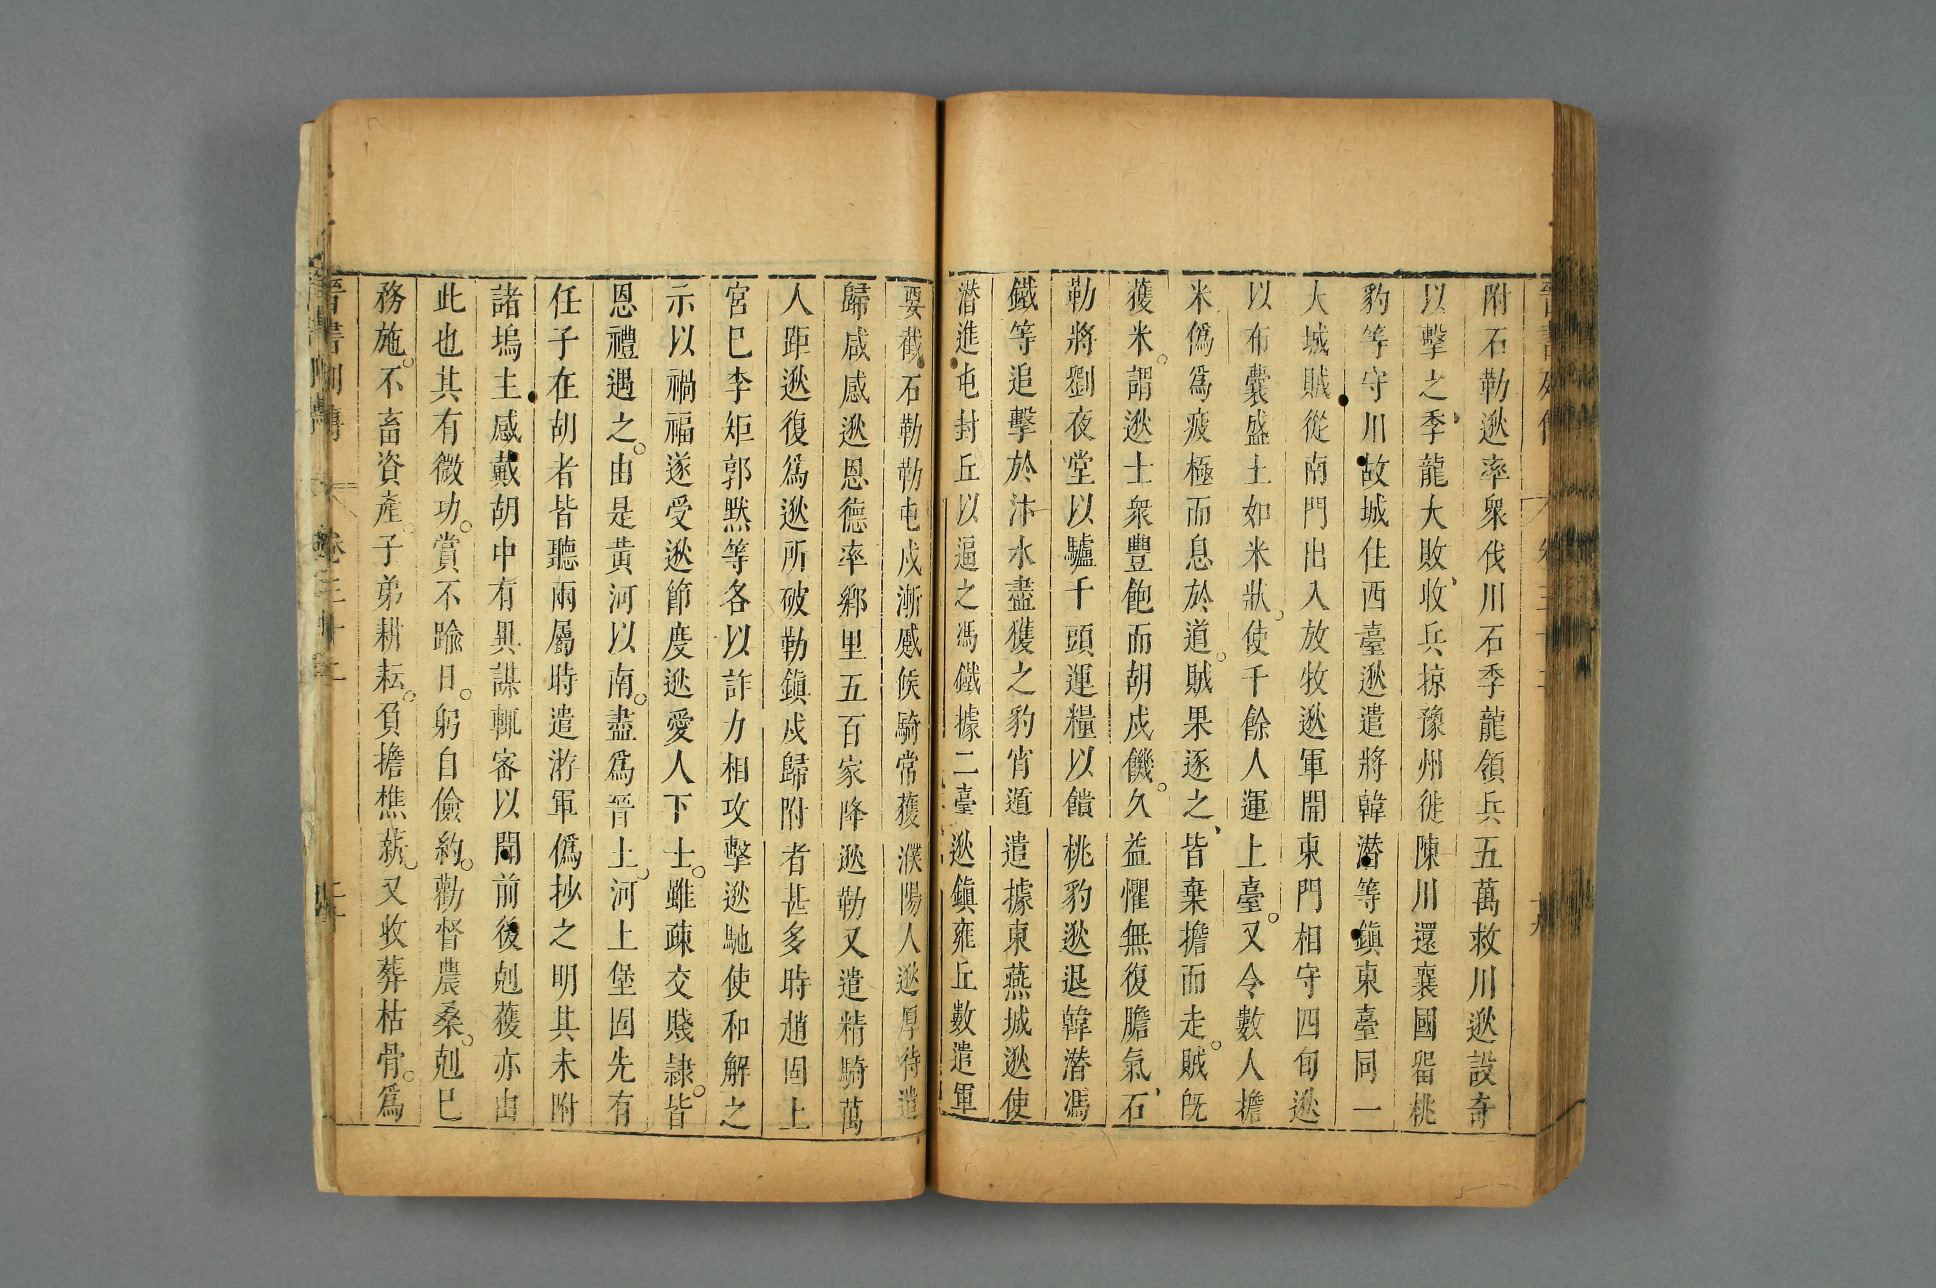 附石勒逖率衆伐川石季龍領兵五萬救川逖設奇
以擊之季龍大敗收兵掠豫州徙陳川還襄國留桃
豹等守川故城住西臺逖遣將韓潜等鎭東臺同一
大城賊從南門出入放牧逖軍開東門相守四旬逖
以布囊盛土如米狀使千餘人運上臺又令數人擔
米僞爲疲極而息於道賊果逐之皆棄擔而走賊旣
獲米謂逖士衆豐飽而胡戍饑久益懼無復膽氣石
勒將劉夜堂以驢千頭運糧以饋桃豹逖遣韓潜馮
鐵等追擊於汴水盡獲之豹宵遁遣據東燕城逖使
潜進屯封丘以逼之馮鐵據二臺逖鎭雍丘數遣軍
要截石勒勒屯戍漸蹙候騎常獲濮陽人逖厚待遣
歸咸感逖恩德率鄉里五百家降逖勒又遣精騎萬
人距逖復爲逖所破勒鎭戍歸附者甚多時趙固上
宮巳李矩郭默等各以詐力相攻擊逖馳使和解之
示以禍福遂受逖節度逖愛人下士雖疎交賤隷皆
恩禮遇之由是黃河以南盡爲晉土河上堡固先有
任子在胡者皆聽兩屬時遣游軍僞抄之明其未附
諸塢主感戴胡中有異謀輒密以聞前後剋獲亦由
此也其有微功賞不踰日躬自儉約勸督農桑剋巳
務施不畜資產子弟耕耘負擔樵薪又收葬枯骨爲
晉書列傳 卷三十二